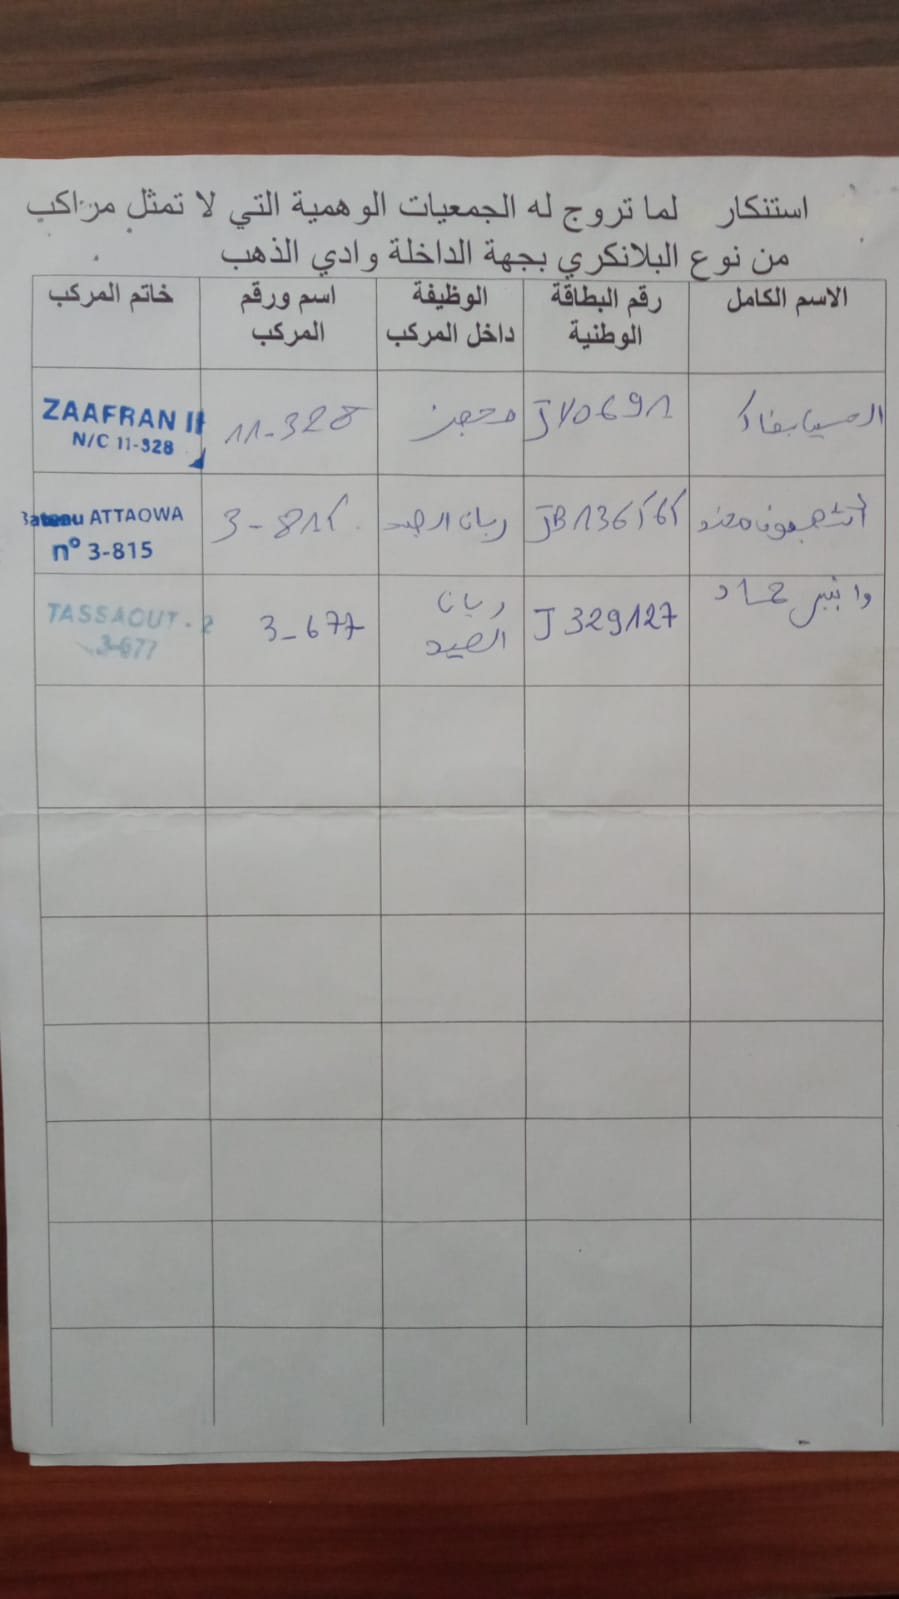 استنكار لما تروج له الجمعيات الوهمية التي لا تمثل مراكب
من نوع البلانكري بجهة الداخلة وادي الذهب
الاسم الكامل
رقم البطاقة الوطنية
الوظيفة داخل المركب
اسم ورقم المركب
خاتم المركب
11-328
ZAAFRAN II
N/C 11-328
ربان الصيد
3-815
Bateau ATTAOWA
n° 3-815
J329127
ربان
الصيد
3-677
TASSAOUT-2
3-677